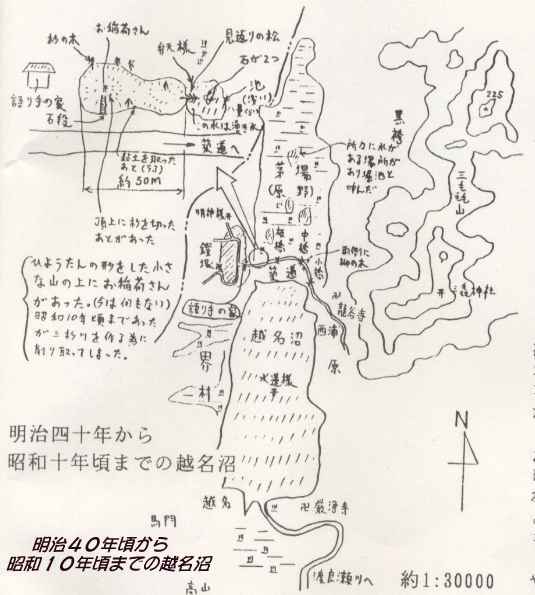 お稲荷さん
杉の木
弁天様
見返りの松
石が2つ
池
(浅い)
語り手の家
石段
築道へ
粘土を取った
約50M
頂上に杉を切った
あとがあった
ひょうたんの形をした小さ
な山の上にお稲荷さん
があった。(今は何もない)
昭和10年頃まであった
削り取ってしまった。
明神様
鐙塚
語り手の家
界
村
茅場
(原野)
中橋
小橋
築道
所々に水が
ある場所が
あり堀池と
呼んだ
黒袴
225
三毳山
三毳神社
卍
龍谷寺
西浦
原
越名沼
水運様
N
明治四十年から
昭和十年頃までの越名沼
越名
卍厳浄寺
馬門
渡良瀬川へ
高山
約1:30000
明治40年頃から
昭和10年頃までの越名沼